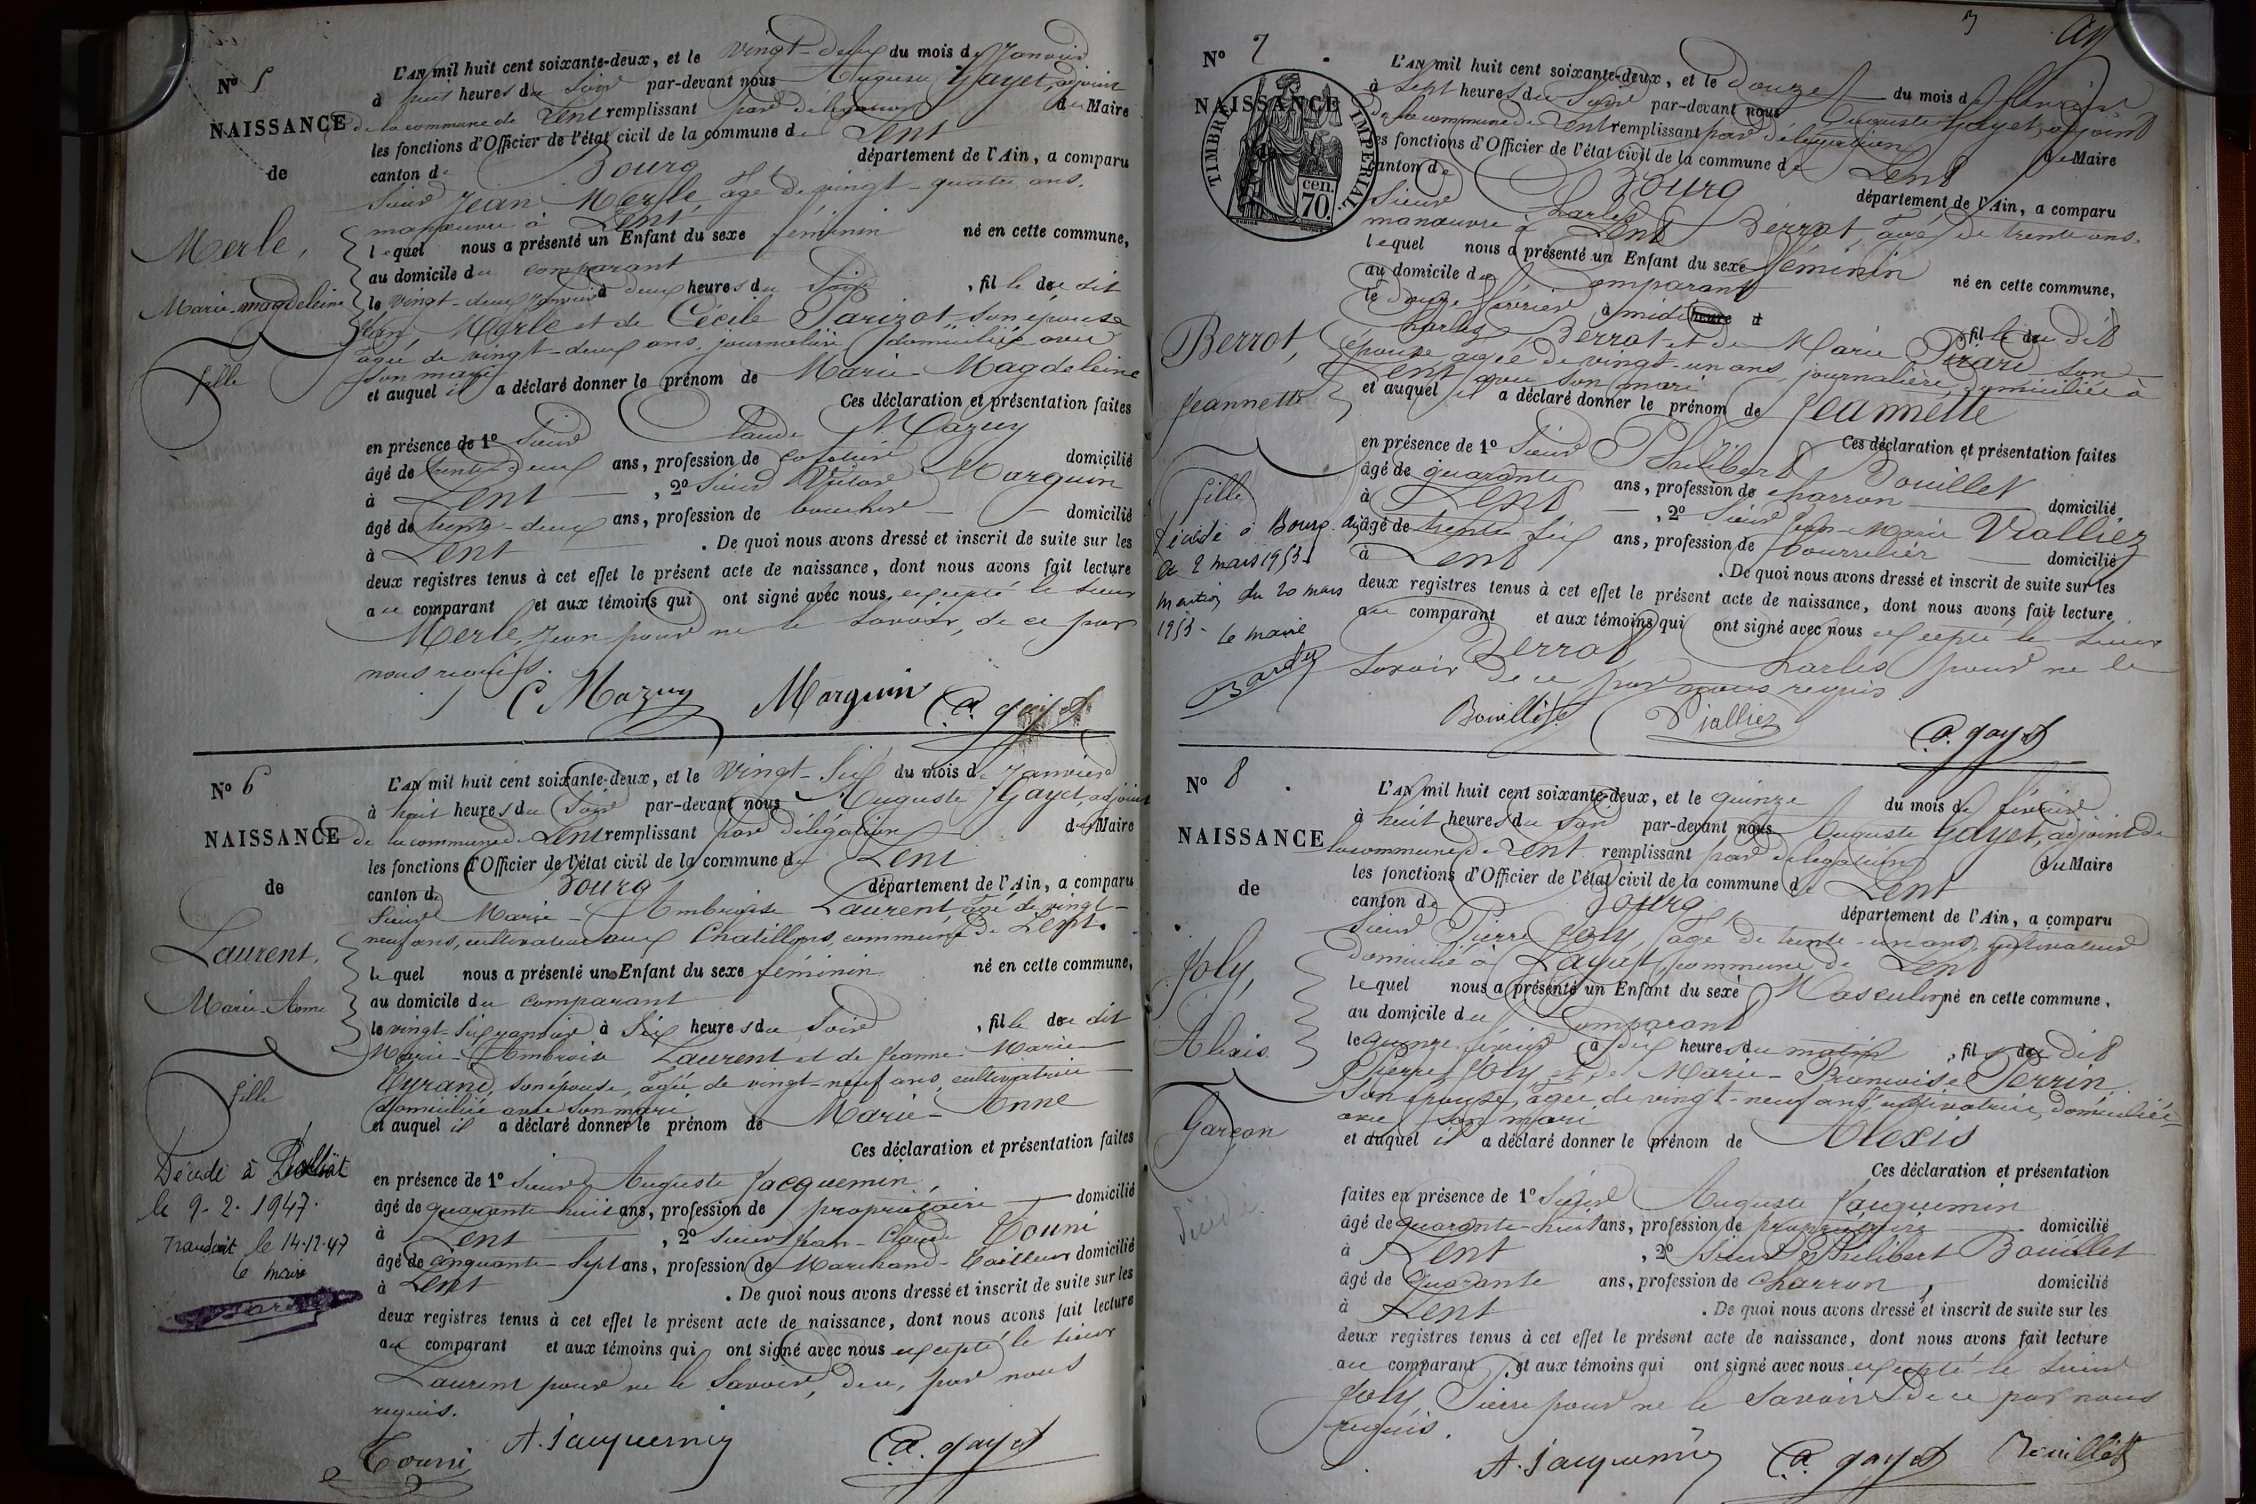 Nº 5
NAISSANCE
de
Merle,
Marie-Magdeleine
fille
L'AN mil huit cent soixante-deux, et le vingt-deux du mois de Janvier
à huit heures du Soir par-devant nous Auguste Gayet, adjoint
de la commune de Lent remplissant par délégation du Maire
les fonctions d'Officier de l'état civil de la commune de Lent
canton de Bourg département de l'Ain, a comparu
Sieur Jean Merle, âgé de vingt-quatre ans,
manœuvre à Lent
lequel nous a présenté un Enfant du sexe féminin né en cette commune,
au domicile du comparant
le vingt-deux Janvier à deux heures du Soir, fille du dit
Jean Merle et de Cécile Parizot son épouse
âgée de vingt-deux ans, journalière domiciliée avec
son mari
et auquel il a déclaré donner le prénom de Marie-Magdeleine
Ces déclaration et présentation faites
en présence de 1º Sieur Claude Mazuy
âgé de trente-deux ans, profession de domicilié
à Lent, 2º Sieur Victor Marguin
âgé de trente-deux ans, profession de boucher domicilié
à Lent. De quoi nous avons dressé et inscrit de suite sur les
deux registres tenus à cet effet le présent acte de naissance, dont nous avons fait lecture
au comparant et aux témoins qui ont signé avec nous excepté le sieur
Merle, Jean pour ne le savoir, de ce par
nous requis.
C Mazuy Marguin A. gayet
Nº 6
NAISSANCE
de
Laurent,
Marie-Anne
fille
Décédé à Polliat
le 9.2.1947.
Transcrit le 14.12.47
le maire
L'AN mil huit cent soixante-deux, et le vingt-six du mois de Janvier
à huit heures du Soir par-devant nous Auguste Gayet, adjoint
de la commune de Lent remplissant par délégation du Maire
les fonctions d'Officier de l'état civil de la commune de Lent
canton de Bourg département de l'Ain, a comparu
Sieur Marie-Ambroise Laurent, âgé de vingt-
neuf ans, cultivateur aux Chatillons, commune de Lent.
lequel nous a présenté un Enfant du sexe féminin né en cette commune,
au domicile du comparant
le vingt-six janvier à six heures du Soir, fille du dit
Marie-Ambroise Laurent et de Jeanne-Marie
Cyrand, son épouse, âgée de vingt-neuf ans, cultivatrice
domiciliée avec son mari
et auquel il a déclaré donner le prénom de Marie-Anne
Ces déclaration et présentation faites
en présence de 1º Sieur Auguste Jacquemin
âgé de quarante-huit ans, profession de propriétaire domicilié
à Lent, 2º Sieur Jean-Claude Tourni
âgé de cinquante-sept ans, profession de Marchand-Tailleur domicilié
à Lent. De quoi nous avons dressé et inscrit de suite sur les
deux registres tenus à cet effet le présent acte de naissance, dont nous avons fait lecture
au comparant et aux témoins qui ont signé avec nous excepté le sieur
Laurent pour ne le Savoir, de ce, par nous
requis.
Tourni A. Jacquemin A. gayet
3
Nº 7
NAISSANCE
de
TIMBRE IMPERIAL
70 cen.
Berrot,
Jeannette
fille
décédée à Bourg
le 2 mars 1953
mention du 20 mars
1953 - le maire
L'AN mil huit cent soixante-deux, et le douze du mois de février
à Sept heures du Soir par-devant nous Auguste Gayet, adjoint
de la commune de Lent remplissant par délégation du Maire
les fonctions d'Officier de l'état civil de la commune de Lent
canton de Bourg département de l'Ain, a comparu
Sieur Charles Berrot, âgé de trente ans,
manœuvre à Lent
lequel nous a présenté un Enfant du sexe féminin né en cette commune,
au domicile du Comparant
le douze février à midi heure d, fille du dit
Charles Berrot et de Marie Pirard son
épouse âgée de vingt-un ans, journalière, domiciliée à
Lent avec son mari
et auquel il a déclaré donner le prénom de Jeannette
Ces déclaration et présentation faites
en présence de 1º Sieur Philibert Bouillet
âgé de quarante ans, profession de charron domicilié
à Lent, 2º Sieur Jean-Marie Vialliez
âgé de trente-six ans, profession de bourrelier domicilié
à Lent. De quoi nous avons dressé et inscrit de suite sur les
deux registres tenus à cet effet le présent acte de naissance, dont nous avons fait lecture
au comparant et aux témoins qui ont signé avec nous excepté le sieur
Berrot Charles pour ne le
Savoir de ce par nous requis
Bouillet Vialliez A. gayet
Nº 8
NAISSANCE
de
Joly,
Alexis
Garçon
L'AN mil huit cent soixante-deux, et le quinze du mois de février
à huit heures du Soir par-devant nous Auguste Gayet, adjoint de
la commune de Lent remplissant par délégation du Maire
les fonctions d'Officier de l'état civil de la commune de Lent
canton de Bourg département de l'Ain, a comparu
Sieur Pierre Joly, âgé de trente-un ans, cultivateur
domicilié à Layat, commune de Lent
lequel nous a présenté un Enfant du sexe Masculin né en cette commune,
au domicile du Comparant
le quinze février à dix heures du matin, fils du dit
Pierre Joly et de Marie-Françoise Perrin
son épouse, âgée de vingt-neuf ans, cultivatrice, domiciliée
avec son mari
et auquel il a déclaré donner le prénom de Alexis
Ces déclaration et présentation
faites en présence de 1º Sieur Auguste Jacquemin
âgé de quarante-huit ans, profession de propriétaire domicilié
à Lent, 2º Sieur Philibert Bouillet
âgé de Quarante ans, profession de charron, domicilié
à Lent. De quoi nous avons dressé et inscrit de suite sur les
deux registres tenus à cet effet le présent acte de naissance, dont nous avons fait lecture
au comparant et aux témoins qui ont signé avec nous excepté le sieur
Joly, Pierre pour ne le Savoir de ce par nous
requis.
A. Jacquemin A. gayet Bouillet